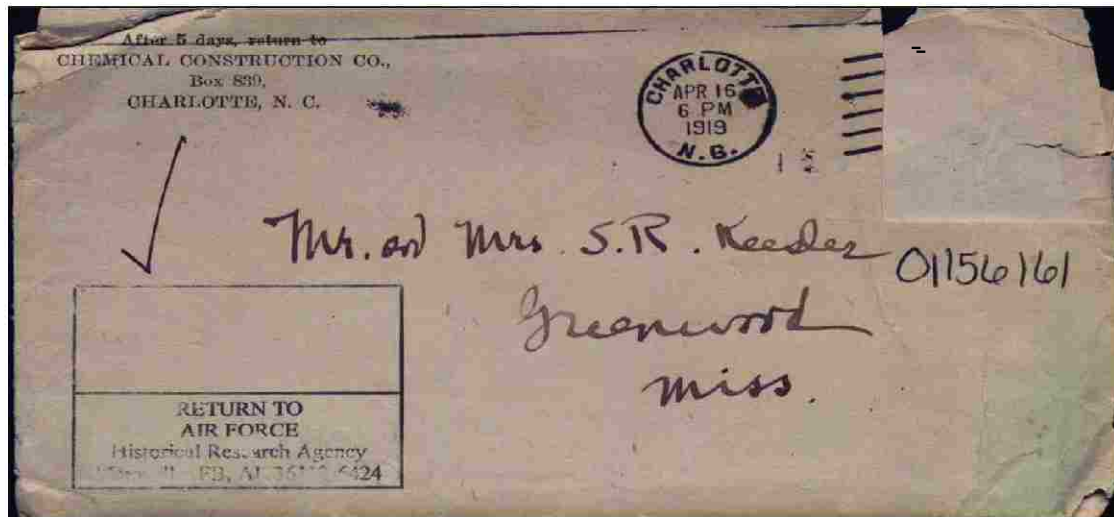 After 5 days, return to
CHEMICAL CONSTRUCTION CO.,
Box 839,
CHARLOTTE, N. C.
CHARLOTTE
APR 16
6 PM
1919
N.C.
Mr. and Mrs. S. R. Keesler
01156161
Greenwood
Miss.
RETURN TO
AIR FORCE
Historical Research Agency
FB, AL 6424